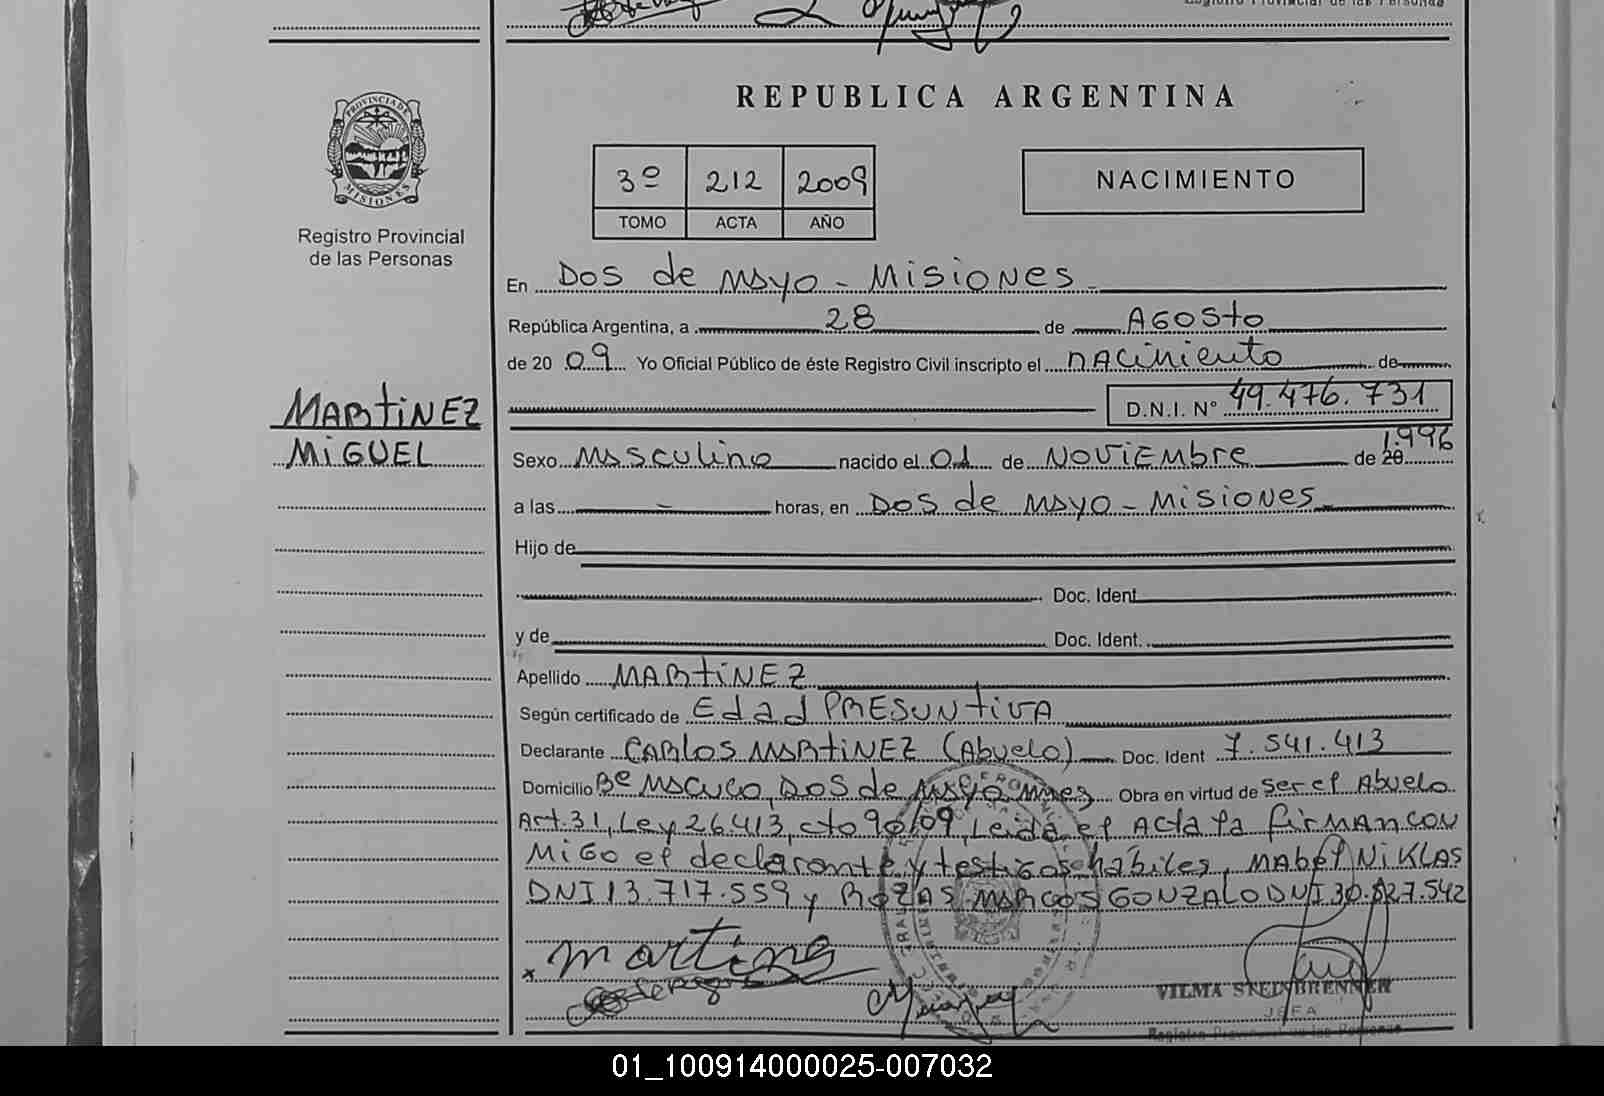 Registro Provincial de las Personas
PROVINCIA DE
MISIONES
Registro Provincial
de las Personas
MARTINEZ
MIGUEL
REPUBLICA ARGENTINA
3º 212 2009
TOMO ACTA AÑO
NACIMIENTO
En DOS de MAYO - MISIONES -
República Argentina, a 28 de AGOSTO
de 20 09 Yo Oficial Público de éste Registro Civil inscripto el NACIMIENTO de
D.N.I. Nº 49.476.731
1.996
Sexo MASCULINO nacido el 01 de NOVIEMBRE de 20
a las - horas, en DOS de MAYO - MISIONES -
Hijo de
Doc. Ident.
y de Doc. Ident.
Apellido MARTINEZ
Según certificado de Edad PRESUNTIVA
Declarante CARLOS MARTINEZ (Abuelo) Doc. Ident 7.541.413
Domicilio Bº MACUCO, DOS de MAYO Mnes Obra en virtud de ser el Abuelo
Art. 31, Ley 26.413, cto 90/09, Leida el Acta la firman con
migo el declarante y testigos hábiles, MABEL NIKLAS
DNI 13.717.559 y ROZAS MARCOS GONZALO DNI 30.827.542
x martinez
VILMA STEINBRENNER
JEFA
Registro Provincial de las Personas
01_100914000025-007032